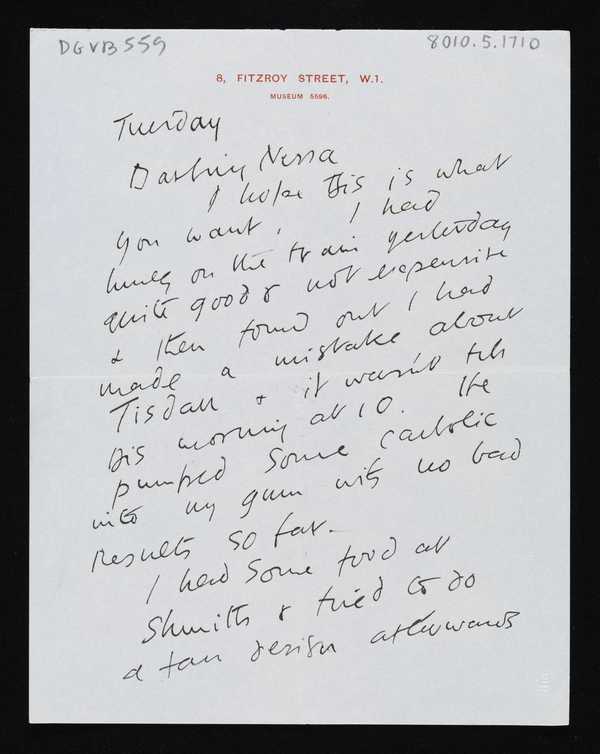 DGVB559
8010.5.1710
8, FITZROY STREET, W.1.
MUSEUM 5596.
Tuesday
Darling Nessa
I hope this is what
you want. I had
lunch on the train yesterday
quite good & not expensive
& then found out I had
made a mistake about
Tisdall & it wasn't till
this morning at 10. He
pumped some carbolic
into my gum with no bad
results so far.
I had some food at
Shmiths & tried to do
a fan design afterwards